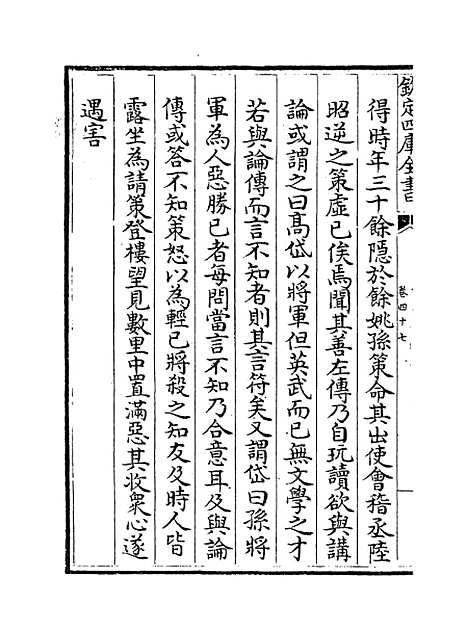 欽定四庫全書
卷四十七
得時年三十餘隠於餘姚孫策命其出使會稽丞陸
昭逆之策虚已俟焉聞其善左傳乃自玩讀欲與講
論或謂之曰髙岱以將軍但英武而已無文學之才
若與論傳而言不知者則其言符矣又謂岱曰孫將
軍為人惡勝已者每問當言不知乃合意耳及與論
傳或答不知策怒以為輕已將殺之知友及時人皆
露坐為請策登樓望見數里中置滿惡其收衆心遂
遇害